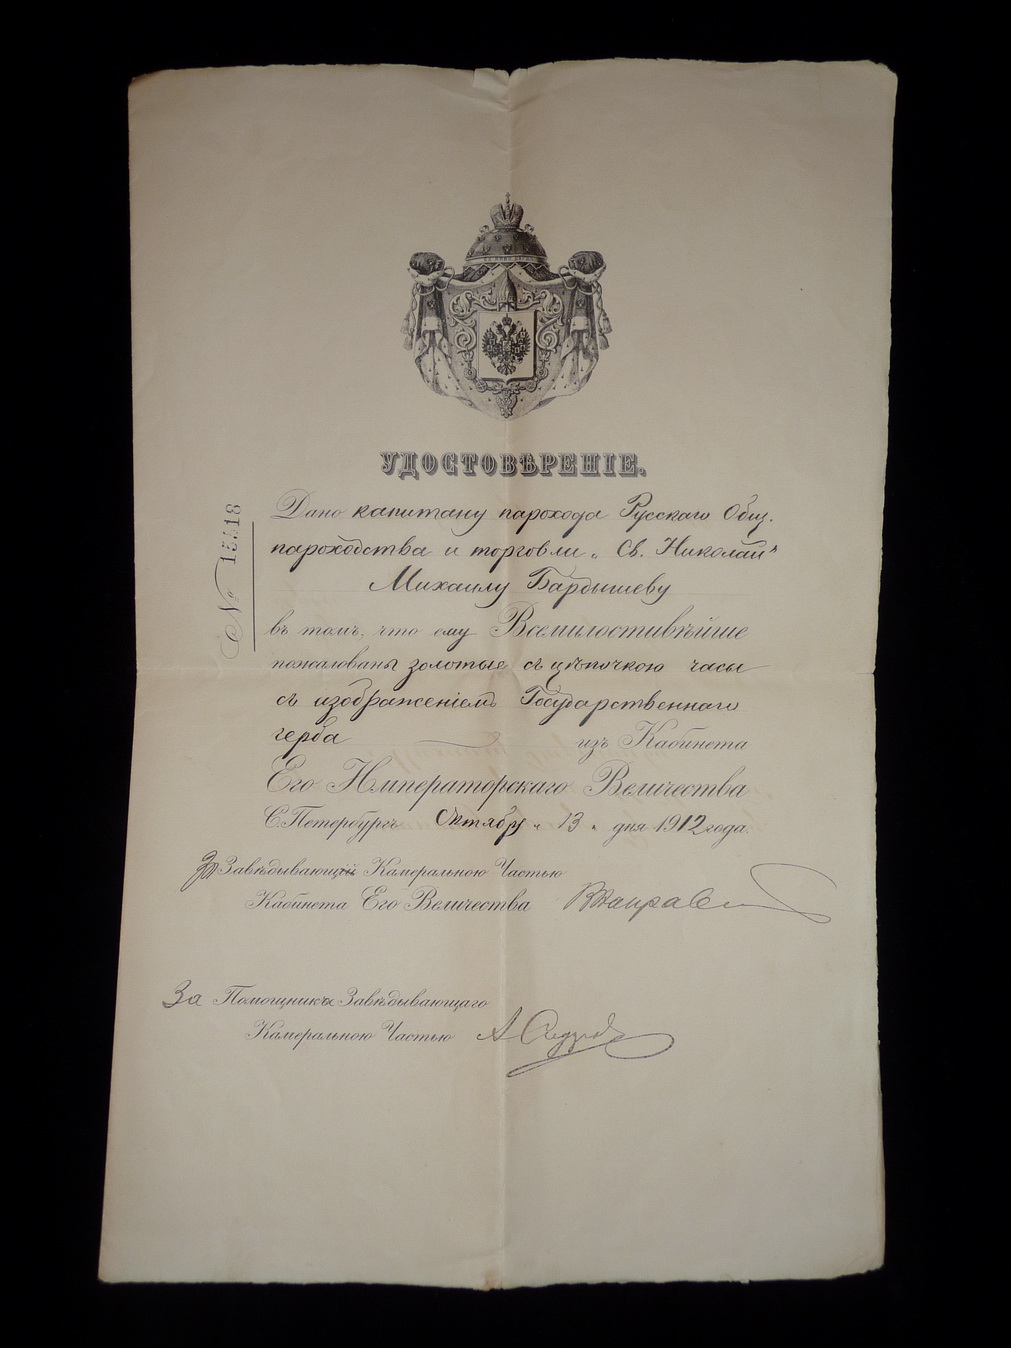 УДОСТОВѢРЕНІЕ.
Дано капитану парохода Русскаго Общ.
пароходства и торговли „Св. Николай"
Михаилу Бардышеву
въ томъ, что ему Всемилостивѣйше
пожалованы золотые съ цѣпочкою часы
съ изображеніемъ Государственнаго
герба изъ Кабинета
Его Императорскаго Величества
С.Петербургъ Октября „13" дня 1912 года.
За Завѣдывающій Камеральною Частью
Кабинета Его Величества
За Помощника Завѣдывающаго
Камеральною Частью
№